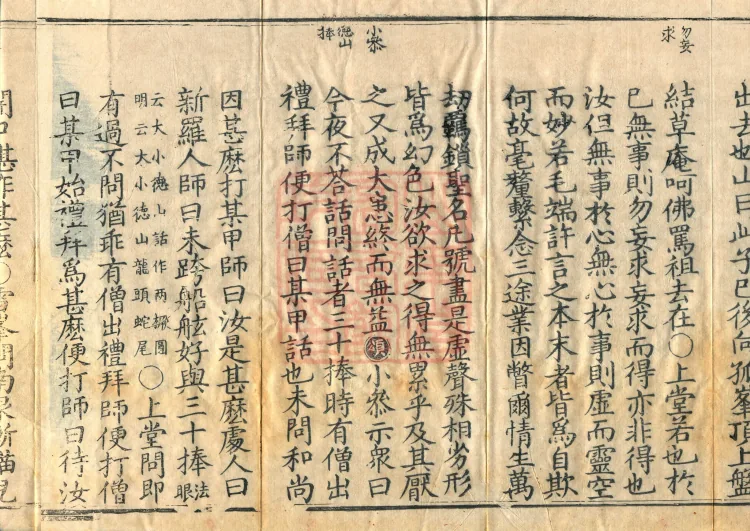 出去也山曰此子已後向孤峯頂上盤
勿妄
求
結草庵呵佛罵祖去在○上堂若也於
已無事則勿妄求妄求而得亦非得也
汝但無事於心無心於事則虛而靈空
而妙若毛端許言之本末者皆爲自欺
何故毫釐繫念三途業因瞥爾情生萬
劫羈鎖聖名凡號盡是虛聲殊相劣形
皆爲幻色汝欲求之得無累乎及其厭
之又成大患終而無益
小叅
德山
捧
小叅示衆曰
今夜不荅話問話者三十捧時有僧出
禮拜師便打僧曰某甲話也未問和尚
因甚麽打某甲師曰汝是甚麽處人曰
新羅人師曰未跨船舷好與三十捧法眼
云大小德山話作兩橛圓
明云大小德山龍頭蛇尾○上堂問即
有過不問猶乖有僧出禮拜師便打僧
曰某甲始禮拜爲甚麽便打師曰待汝
開口堪作甚麽○雪峯問南泉斬猫兒